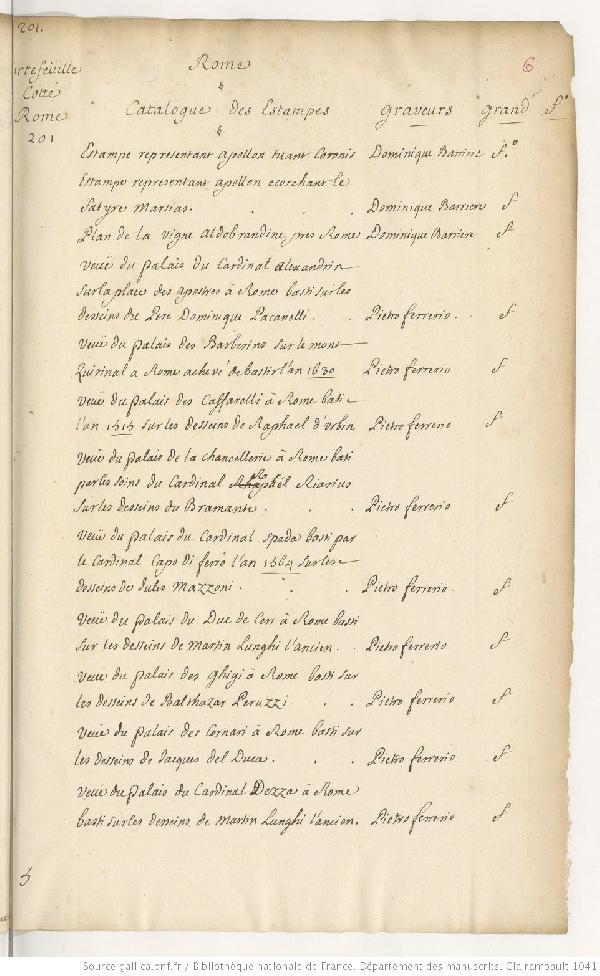 201.
Rome
6
ortefeüille
Cotté
Rome
201
Catalogue des Estampes Graveurs grandr f.°
Estampe representant apollon tuant Coronis Dominique Barriere f.°
Estampe representant apollon ecorchant le
Satyre Marsias. . . . Dominique Barriere f
Plan de la vigne aldobrandine pres Rome Dominique Barriere f
Veüe du palais du Cardinal alexandrin
sur la place des apostres à Rome basti sur les
desseins du Pere Dominique Paganelli. . Pietro ferrerio. f
Veüe du palais des Barberins sur le mont
Quirinal a Rome achevé de bastir l'an 1630 Pietro ferrerio f
Veüe du palais des Caffarelli à Rome basti
l'an 1515 sur les desseins de Raphael d'urbin Pietro ferrerio f
Veüe du palais de la chancellerie à Rome basti
par les soins du Cardinal Raphël Riarius
sur les desseins du Bramante. . . Pietro ferrerio f
Veüe du palais du Cardinal Spada basti par
le Cardinal Capo di ferro l'an 1564 sur les
desseins de Jules Mazzoni. . . Pietro ferrerio. f
Veüe du palais du Duc de Ceri à Rome basti
sur les desseins de Martin Lunghi l'ancien. . Pietro ferrerio f
Veüe du palais des Ghigi à Rome basti sur
les desseins de Balthazar Peruzzi . . Pietro ferrerio f
Veüe du palais des Cornari à Rome basti sur
les desseins de Jacques del Duca. . . Pietro ferrerio f
Veüe du palais du Cardinal Dezza à Rome
basti sur les desseins de Martin Lunghi l'ancien. Pietro ferrerio f
5
Source gallica.bnf.fr / Bibliothèque nationale de France. Département des manuscrits. Clairambault 1041